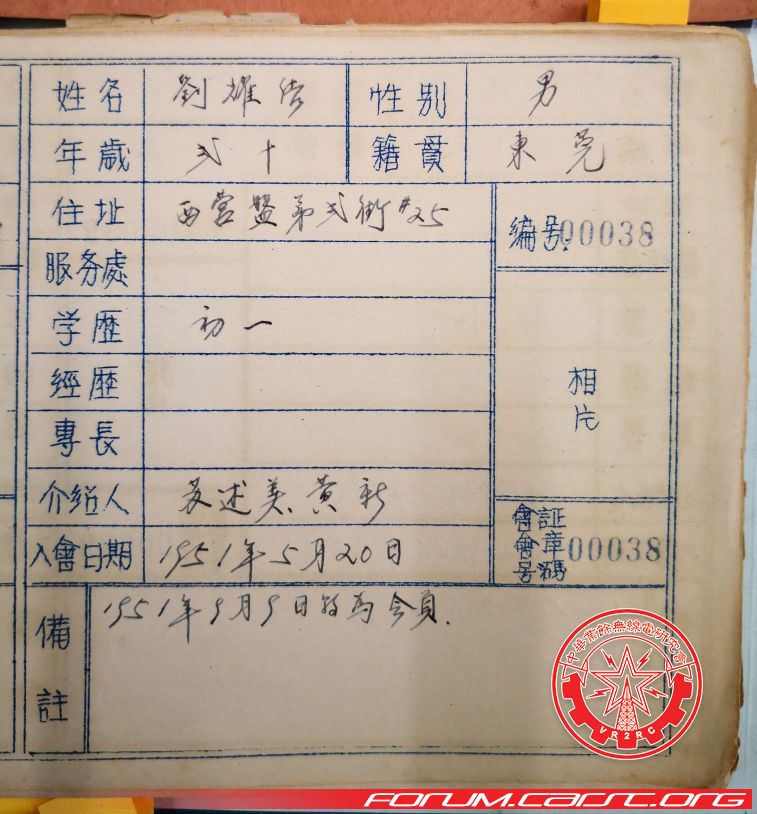 姓名 劉雄 性别 男
年歲 弍十 籍貫 東莞
住址 西营盤弟弍街#25 编号. 00038
服务處
学歷 初一 相片
經歷
專長
介紹人 黄新
入會日期 1951年5月20日 會証會章号碼 00038
備註 1951年9月9日為会員.
中華業餘無線電研究會
VR2RC
FORUM.CARST.ORG